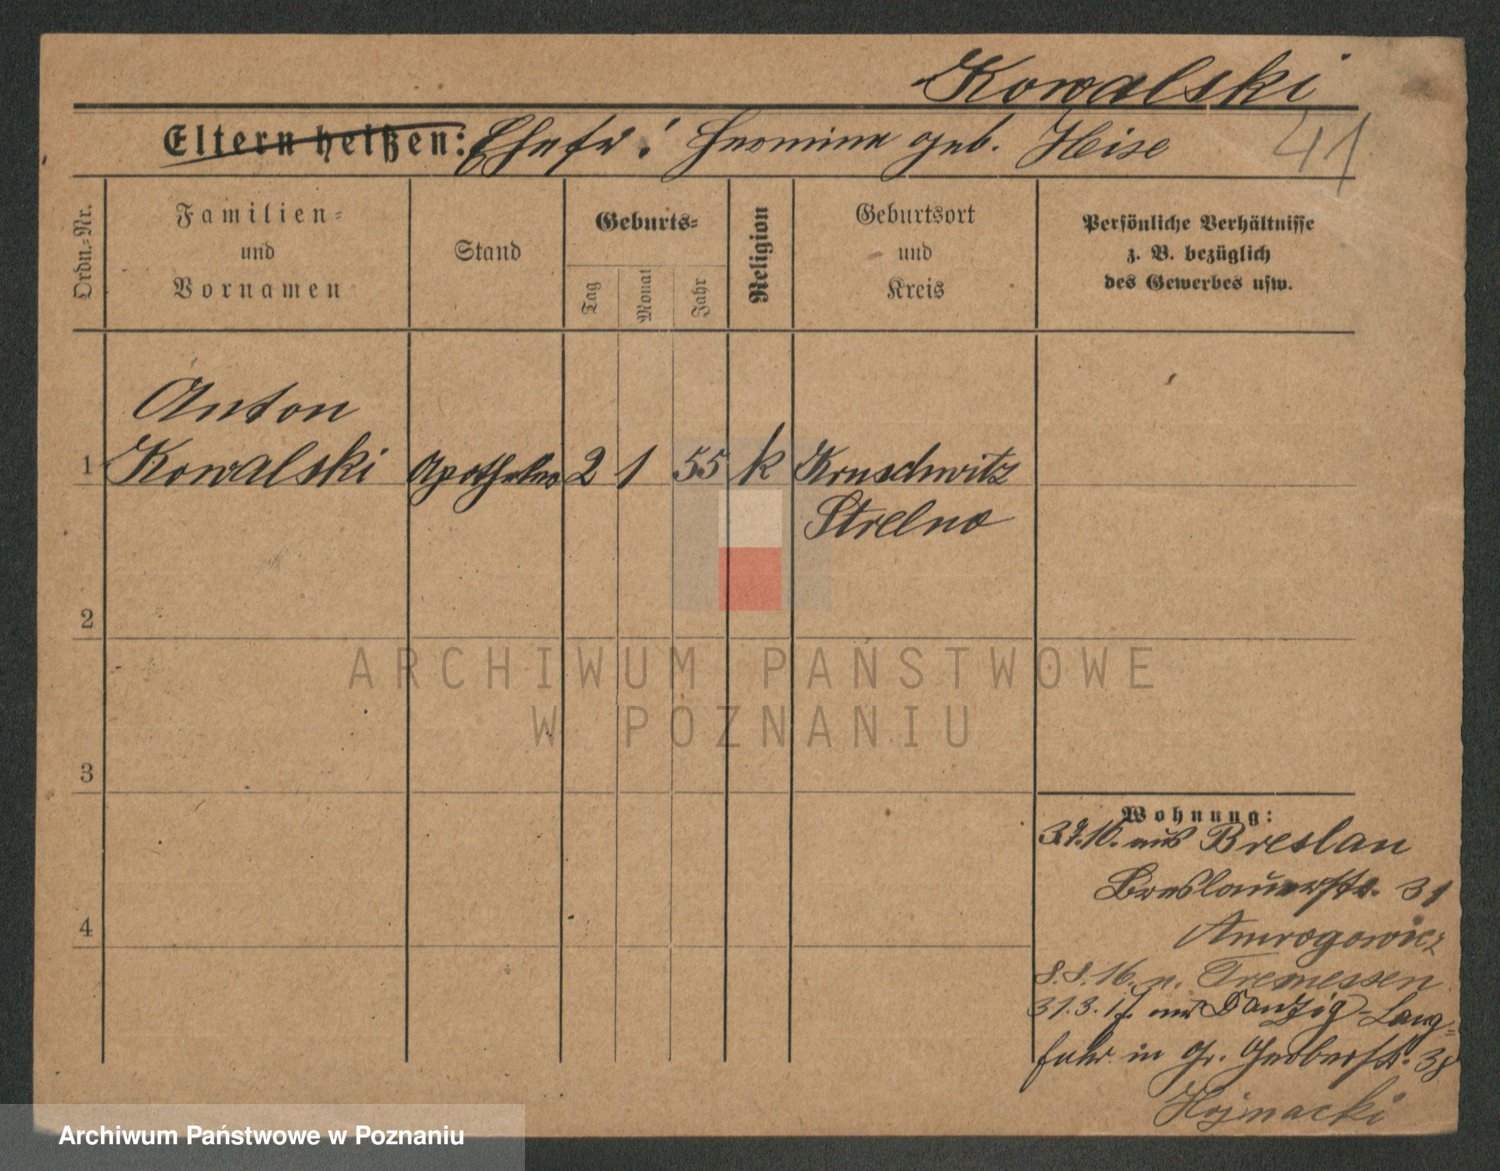 Kowalski
Eltern heißen: Ehefr: Hermine geb. Heise
41
Ordn.=Nr.
Familien=
und
Vornamen
Stand
Geburts=
Tag
Monat
Jahr
Religion
Geburtsort
und
Kreis
Persönliche Verhältnisse
z. B. bezüglich
des Gewerbes usw.
Anton
1 Kowalski Apotheker 2 1 55 k Kruschwitz
Strelno
2
3
4
Wohnung:
aus Breslau
Breslauerstr. 31
Amrogowicz
8.8.16. n. Tremessen
31.3.17. aus Danzig-Lang=
fuhr in Gr. Gerberstr. 38
Hojnacki
ARCHIWUM PAŃSTWOWE
W POZNANIU
Archiwum Państwowe w Poznaniu